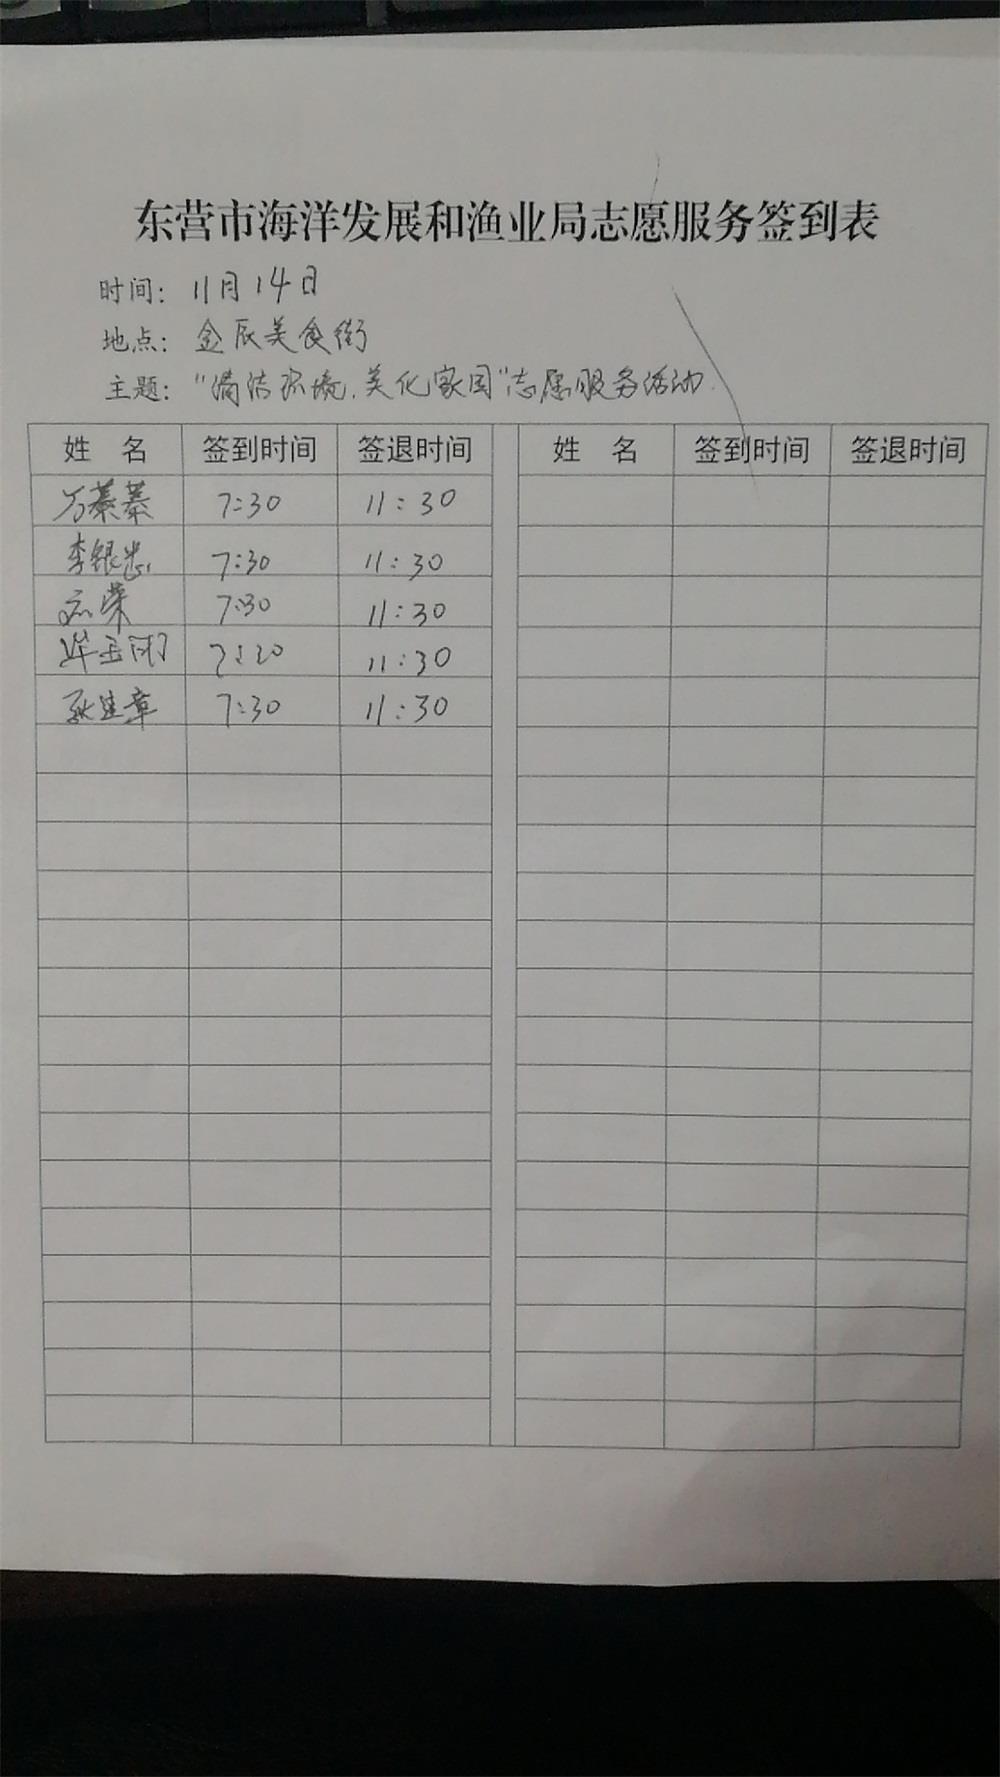 东营市海洋发展和渔业局志愿服务签到表
时间： 11月14日
地点： 金辰美食街
主题： “清洁环境，美化家园”志愿服务活动
姓 名 签到时间 签退时间 姓 名 签到时间 签退时间
万蓁蓁 7:30 11:30
李银忠 7:30 11:30
荣 7:30 11:30
毕玉 7:20 11:30
耿建章 7:30 11:30